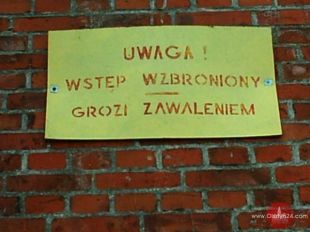 UWAGA !
WSTĘP WZBRONIONY
GROZI ZAWALENIEM
www.Olsztyn24.com